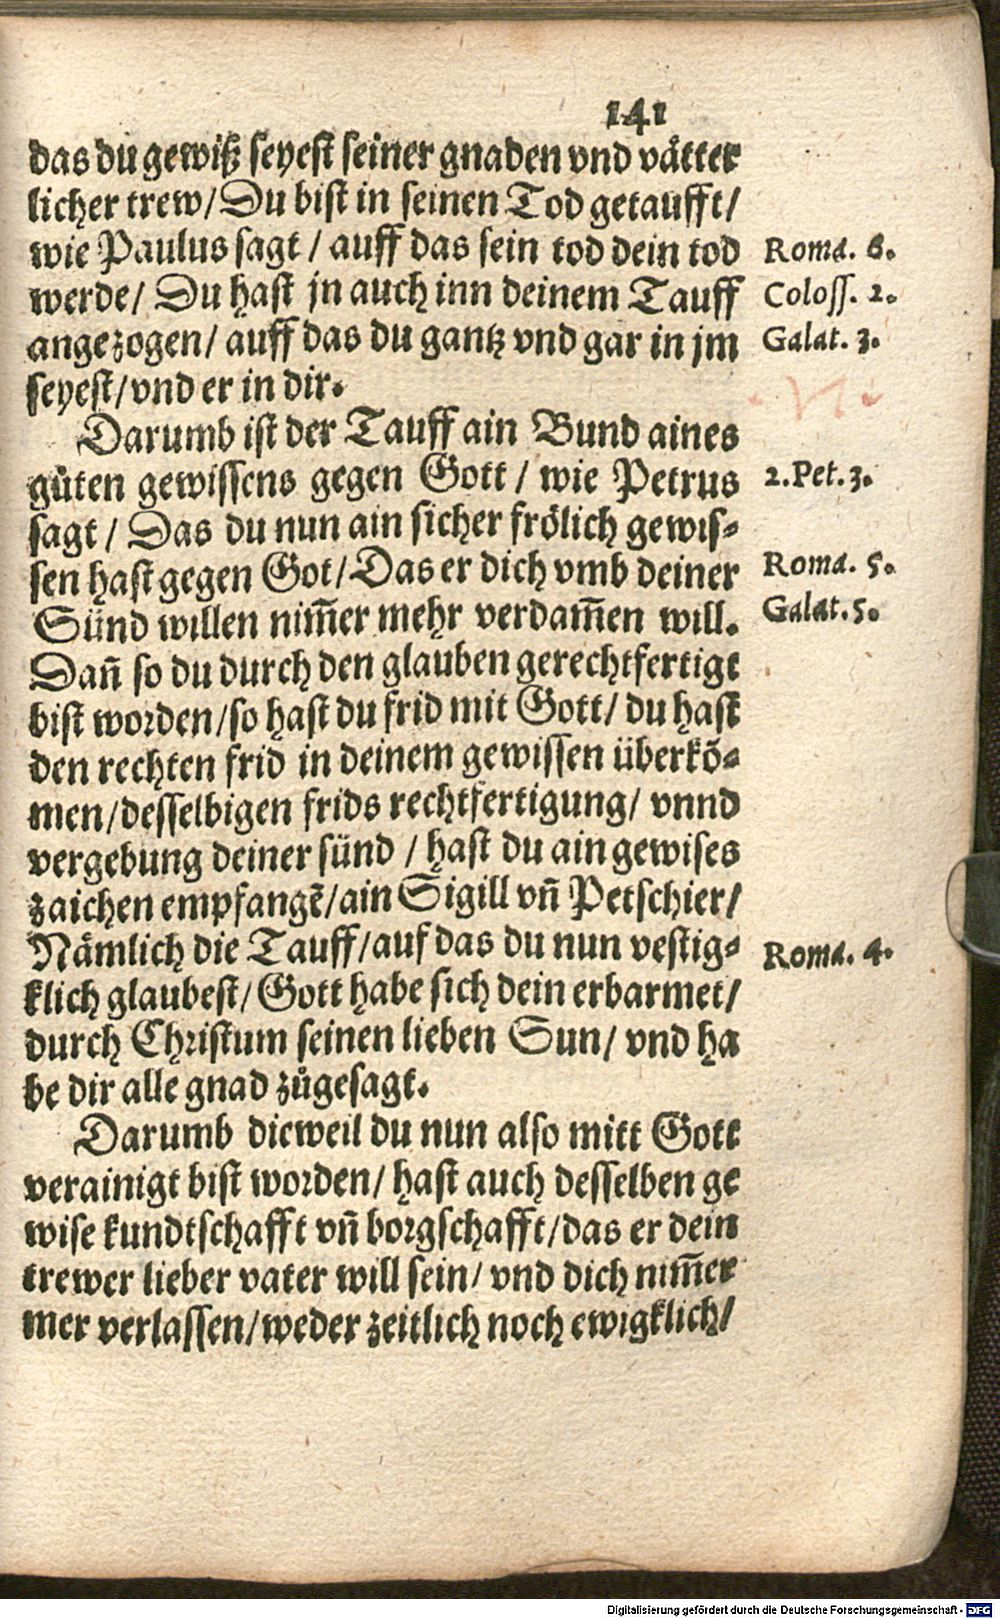 141
das du gewiß seyest seiner gnaden vnd vätter
licher trew/ Du bist in seinen Tod getaufft/
wie Paulus sagt / auff das sein tod dein tod
Roma. 6.
werde/ Du hast jn auch inn deinem Tauff
Coloss. 2.
angezogen/ auff das du gantz vnd gar in jm
Galat. 3.
seyest/ vnd er in dir.
Darumb ist der Tauff ain Bund aines
gůten gewissens gegen Gott / wie Petrus
2. Pet. 3.
sagt / Das du nun ain sicher frölich gewis-
sen hast gegen Got/ Das er dich vmb deiner
Roma. 5.
Sünd willen nim̃er mehr verdam̃en will.
Galat. 5.
Dañ so du durch den glauben gerechtfertigt
bist worden/ so hast du frid mit Gott/ du hast
den rechten frid in deinem gewissen überkõ-
men/ desselbigen frids rechtfertigung/ vnnd
vergebung deiner sünd / hast du ain gewises
zaichen empfangẽ/ ain Sigill vñ Petschier/
Nämlich die Tauff/ auf das du nun vestig-
Roma. 4.
klich glaubest/ Gott habe sich dein erbarmet/
durch Christum seinen lieben Sun/ vnd ha
be dir alle gnad zůgesagt.
Darumb dieweil du nun also mitt Gott
verainigt bist worden/ hast auch desselben ge
wise kundtschafft vñ borgschafft/ das er dein
trewer lieber vater will sein/ vnd dich nim̃er
mer verlassen/ weder zeitlich noch ewigklich/
Digitalisierung gefördert durch die Deutsche Forschungsgemeinschaft - DFG